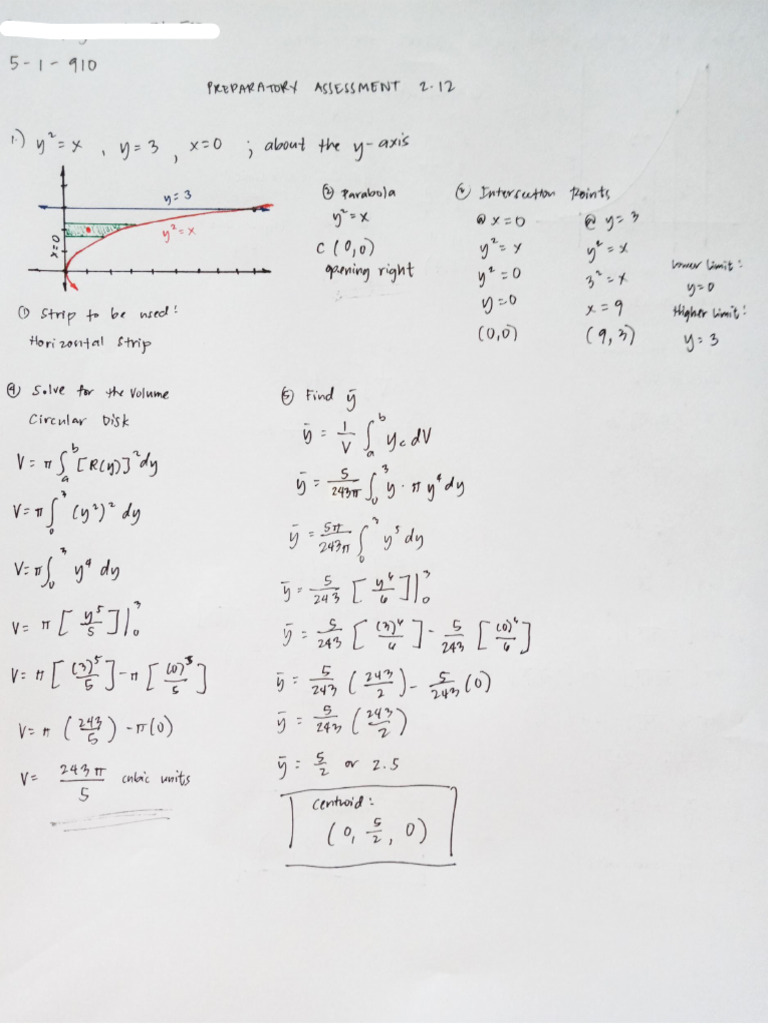 5-1-910
PREPARATORY ASSESSMENT 2.12
1.) y² = x , y = 3 , x = 0 ; about the y-axis
y = 3
y² = x
x = 0
① Strip to be used:
Horizontal Strip
② Parabola
y² = x
C (0,0)
opening right
Intersection Points
@ x = 0
y² = x
y² = 0
y = 0
(0,0)
@ y = 3
y² = x
3² = x
x = 9
(9, 3)
Lower Limit:
y = 0
Higher Limit:
y = 3
④ Solve for the Volume
Circular Disk
V = π ∫ₐᵇ [R(y)]² dy
V = π ∫₀³ (y²)² dy
V = π ∫₀³ y⁴ dy
V = π [ y⁵/5 ] |₀³
V = π [ (3)⁵/5 ] - π [ (0)⁵/5 ]
V = π ( 243/5 ) - π(0)
V = 243π/5 cubic units
⑤ Find ȳ
ȳ = 1/V ∫ₐᵇ y꜀ dV
ȳ = 5/243π ∫₀³ y · π y⁴ dy
ȳ = 5π/243π ∫₀³ y⁵ dy
ȳ = 5/243 [ y⁶/6 ] |₀³
ȳ = 5/243 [ (3)⁶/6 ] - 5/243 [ (0)⁶/6 ]
ȳ = 5/243 ( 243/2 ) - 5/243 (0)
ȳ = 5/243 ( 243/2 )
ȳ = 5/2 or 2.5
Centroid:
(0, 5/2, 0)